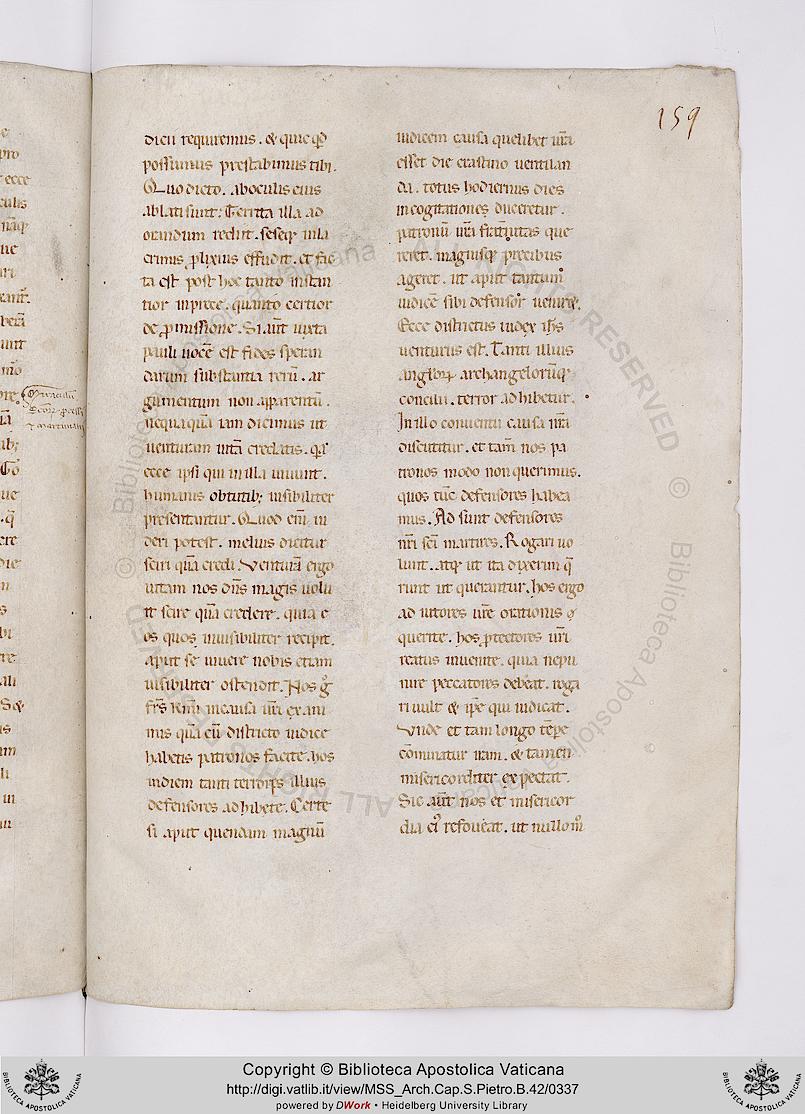 159
dicii requiremus . & quicqd
possumus prestabimus tibi .
Quo dicto . aboculis eius
ablati sunt : Territa illa ad
orandum rediit . seseq; in la
crimis ꝓlixius effudit . et fac
ta est post hoc tanto instan
tior inprece . quanto certior
de ꝓmissione . Si aut̄ iuxta
pauli uocē est fides speran
darum substantia rerū . ar
gumentum non apparentū .
nequaquā iam dicimus ut
uenturam uitā credatis . q̄a
ecce ipsi qui in illa uiuunt .
humanis obtutib; uisibiliter
presentantur . Quod eni in
deri potest . melius dicitur
sciri quā credi . Venturā ergo
uitam nos dn̄s magis uolu
it scire quā credere . quia e
os quos inuisibiliter recipit .
aput se uiuere nobis etiam
uisibiliter ostendit . Hos g̊
frs̄ km̄i incausa ur̄i exani
mis quā cū districto iudice
habetis patronos facite . hos
indiem tanti terroris illius
defensores adhibete . Certe
si aput quendam magnū
iudicem causa quelibet ur̄a
esset die crastino uentilan
da . totus hodiernus dies
incogitationes duceretur .
patronū ur̄a frat̄nitas que
reret . magnisq; precibus
ageret . ut aput tantum
iudicē sibi defensor ueniret .
Ecce districtus iudex ih̄s
uenturus est . Tanti illius
anglorꝝ archangelorūq;
concilii . terror adhibetur .
In illo conuentu causa nr̄a
discutitur . et tam̄ nos pa
tronos modo non querimus .
quos tūc defensores habea
mus . Ad sunt defensores
nr̄i sc̄i martires . Rogari uo
lunt . atq; ut ita dixerim q̄
runt ut querantur . hos ergo
ad iutores ur̄e orationis q̄
querite . hos ꝓtectores ur̄i
reatus inuenite . quia nepu
nire peccatores debeat . roga
ri uult & ip̄e qui iudicat .
Unde et tam longo tēpe
cōminatur iram . & tamen
misericorditer expectat .
Sic aut̄ nos et misericor
dia ei᾽ refoueat . ut nullom̊
Miraculū
Scorꝝ ꝓcessi
⁊ martiniani
© Biblioteca Apostolica Vaticana
ALL RIGHTS RESERVED
Copyright © Biblioteca Apostolica Vaticana
http://digi.vatlib.it/view/MSS_Arch.Cap.S.Pietro.B.42/0337
powered by DWork • Heidelberg University Library
BIBLIOTECA APOSTOLICA VATICANA
BIBLIOTECA APOSTOLICA VATICANA